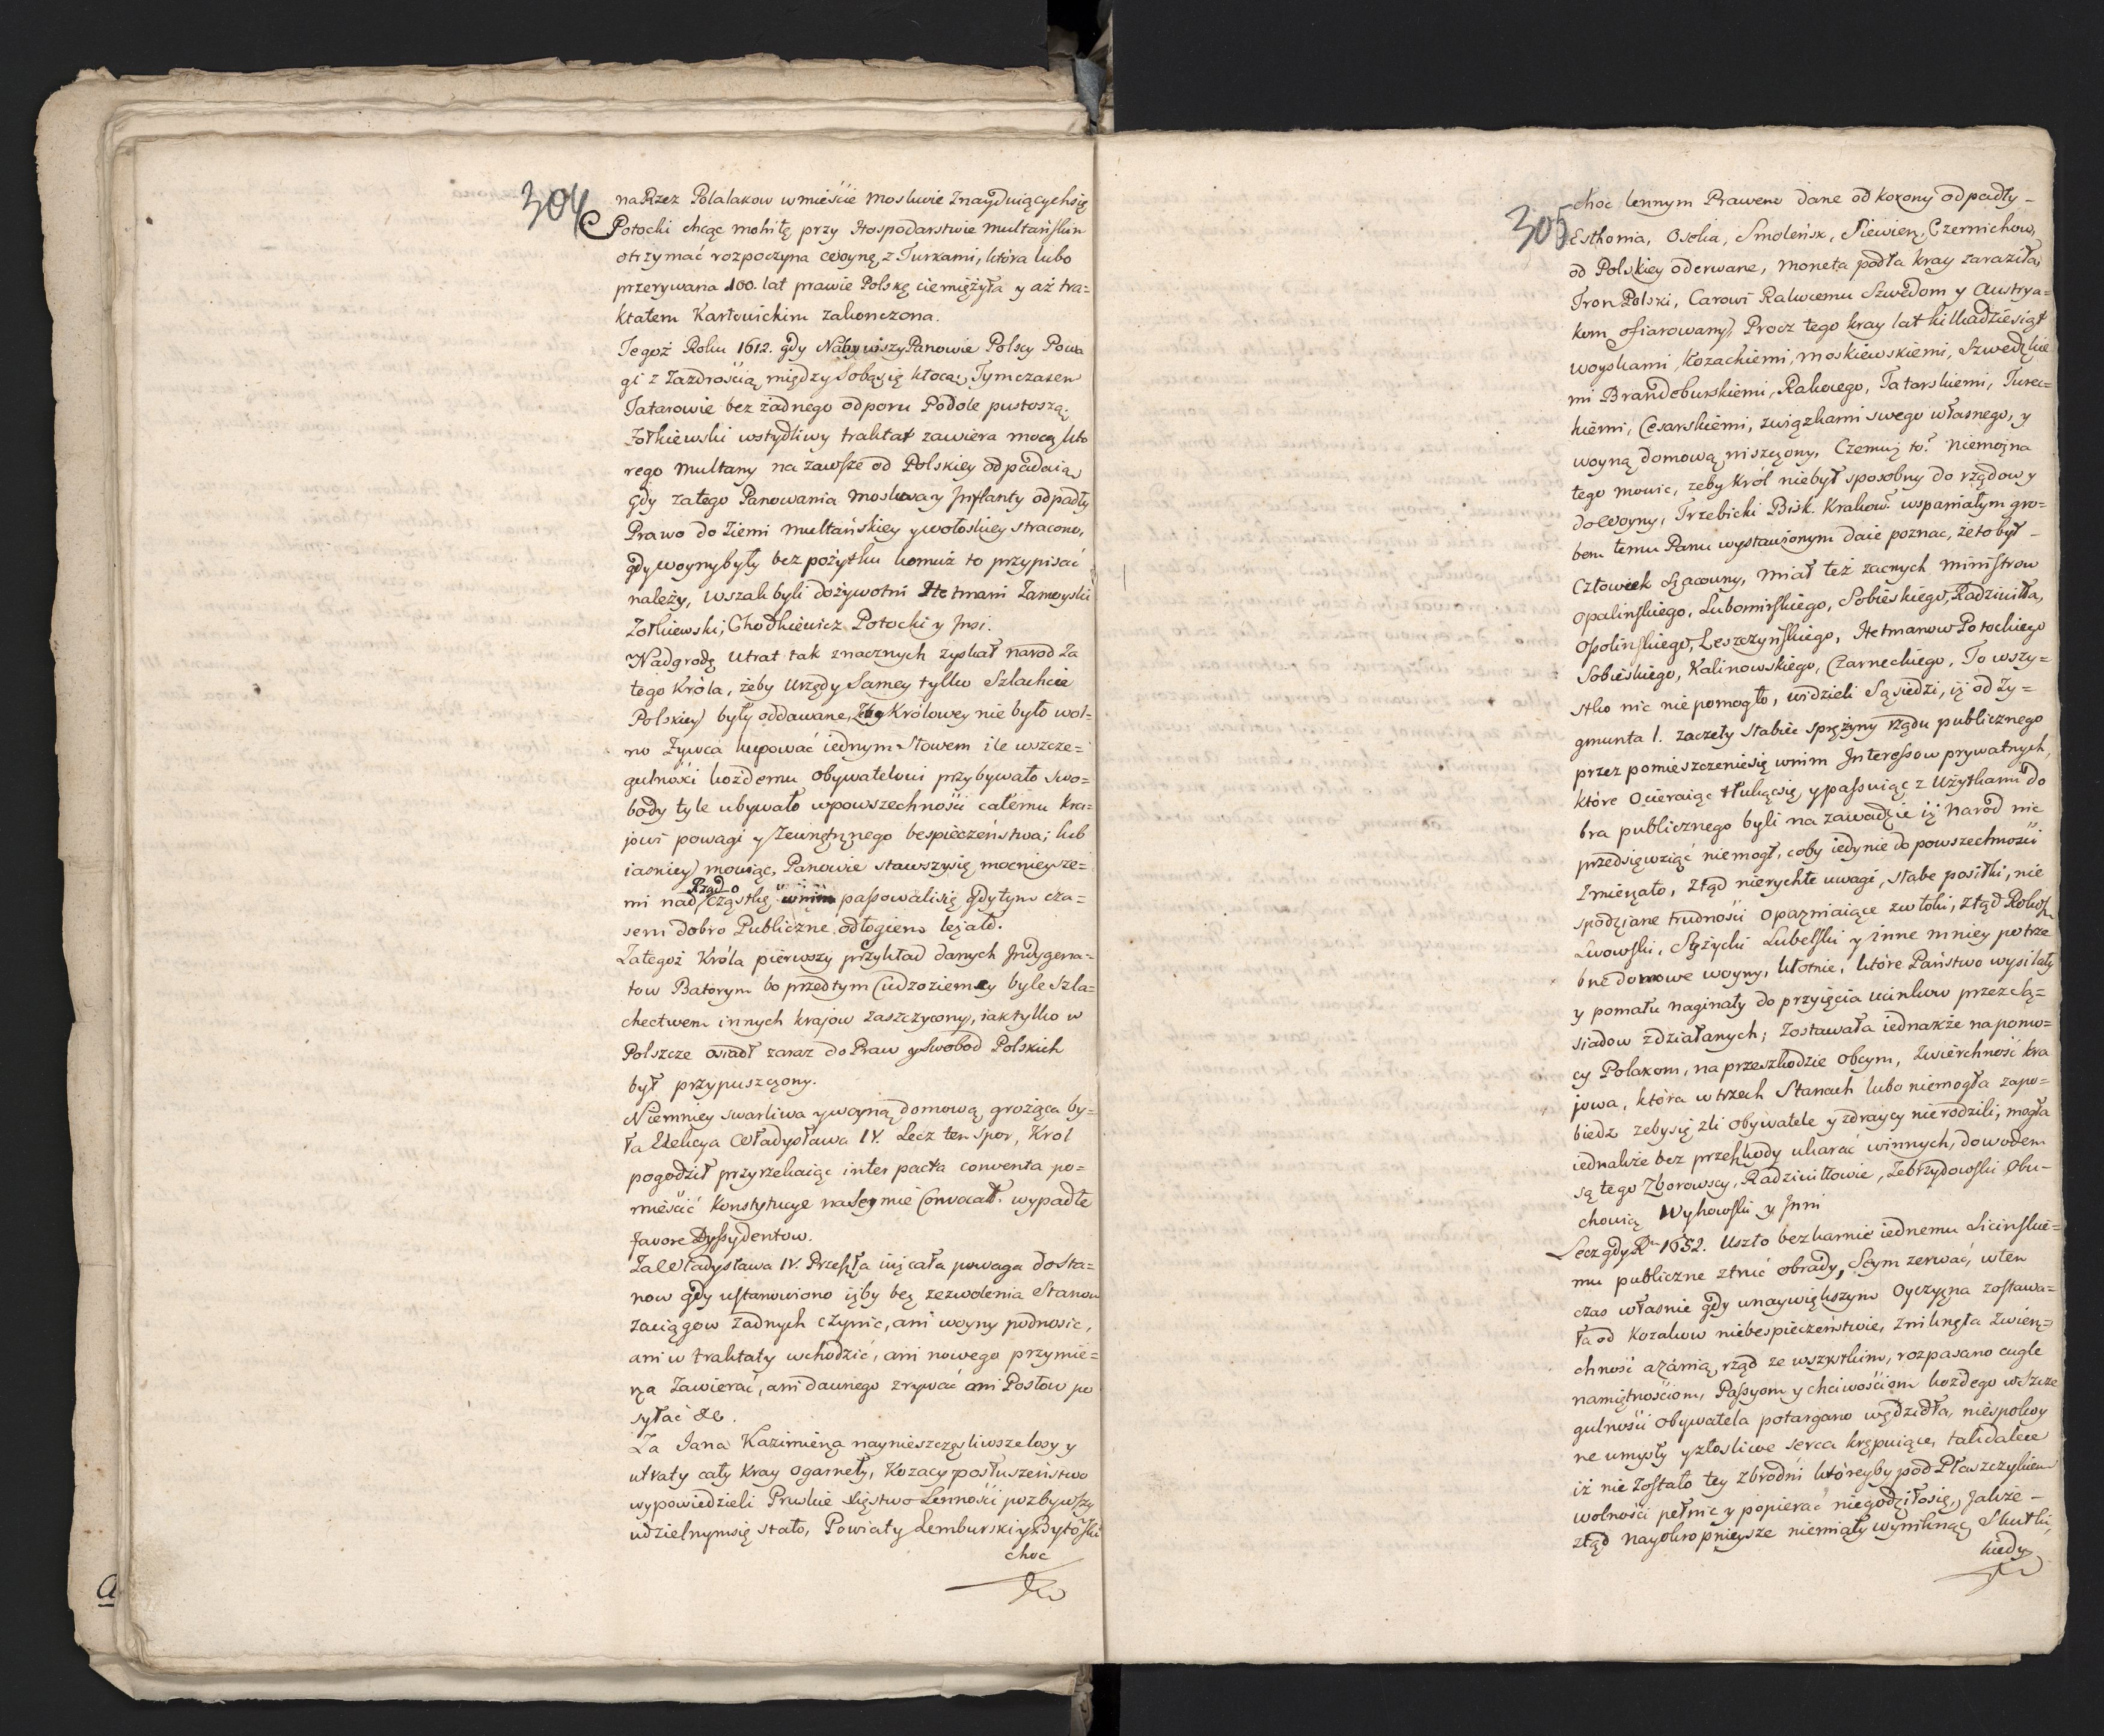 304
na Rzez Polalakow w mieście Moskwie Znayduiących się
Potocki chcąc mohiłę przy Hospodarstwie Multańskim
otrzymać rozpoczyna Woynę z Turkami, która lubo
przerywana 100. lat prawie Polskę ciemiężyła y aż tra=
ktatem Karłowickim zakonczona.
Tegoż Roku 1612. gdy Nabywszy Panowie Polscy Powa
gi z Zazdrością między Sobą się kłocą, Tymczasem
Tatarowie bez żadnego odporu Podole pustoszą,
Żołkiewski wstydliwy traktat zawiera mocą któ
rego Multany na zawsze od Polskiey odpadaią,
Gdy za tego Panowania Moskwa y Inflanty odpadły
Prawo do Ziemi Multańskiey y wołoskiey stracono,
gdy woyny były bez pożytku komuż to przypisać
należy, wszak byli dożywotni Hetmani Zamoyski
Żołkiewski, Chodkiewicz Potocki y Inni.
Nadgrodę Utrat tak znacznych zyskał narod Za
tego Króla, żeby Urzędy Samey tylko Szlachcie
Polskiey były oddawane, żeby Królowey nie było wol=
no Żywca kupować iednym Słowem ile wszcze=
gulności każdemu obywatelowi przybywało swo=
body tyle ubywało w powszechności całemu kra=
jowi powagi y Zewnętrznego bespieczeństwa; lub
iasniey mowiąc, Panowie stawszy się mocnieysze=
mi nad Rząd o cząstkę w nim passowali się gdy tym cza=
sem dobro Publiczne odłogiem leżało.
Za tegoż Króla pierwszy przykład danych Indygena=
tow Batorym bo przedtym Cudzoziemcy byle Szla=
chectwem innych krajow zaszczycony, iak tylko w
Polszcze osiadł zaraz do Praw y Swobod Polskich
był przypuszczony.
Niemniey swarliwa y woyną domową grożąca by=
ła Elekcya Władysława IV. Lecz ten spor, Krol
pogodził przyrzekaiąc inter pacta conventa po=
mieścić konstytucye na Seymie Convocat. wypadłe
favore Dyssydentow.
Za Władysława IV. Przeszła iuż cała powaga do Sta=
now gdy ustanowiono iżby bez zezwolenia Stanow
Zaciągow Żadnych czynic, ani woyny podnosic,
ani w traktaty wchodzić, ani nowego przymie=
rza Zawierać, ani dawnego zrywać ani Posłow po
syłać &c.
Za Jana Kazimierza naynieszczęsliwsze losy y
utraty cały Kray ogarneły, Kozacy posłuszeństwo
wypowiedzieli Pruskie Xięstwo Lenności pozbywszy
udzielnym się stało, Powiaty Lemburski y Bytowski
choc
305
choc lennym Prawem dane od korony odpadły –
Esthonia, Oselia, Smoleńsk, Siewierz, Czernichow,
od Polskiey oderwane, moneta podła kray zaraziła,
Tron Polski, Carowi Rakocemu Szwedom y Austrya=
kom ofiarowany, Procz tego kray lat kilkadziesiąt
woyskami Kozackiemi, moskiewskiemi, Szwedzkie
mi Brandeburskiemi, Rakocego, Tatarskiemi, Turec=
kiemi, Cesarskiemi, związkami swego własnego, y
woyną domową niszczony, Czemuż to? Niemożna
tego mowic, zeby król niebył sposobny do rządow y
do Woyny, Trzebicki Bisk. Krakow. wspaniałym gro=
bem temu Panu wystawionym daie poznac, że to był –
Człowiek Szacowny, Miał też zacnych Ministrow
Opalinskiego, Lubomirskiego, Sobieskiego, Radziwiłła,
Ossolinskiego, Leszczyńskiego, Hetmanow Potockiego
Sobieskiego, Kalinowskiego, Czarneckiego, To wszy=
stko nic niepomogło, widzieli Sąsiedzi, iż od Zy=
gmunta I. zaczeły słabiec sprężyny rządu publicznego
przez pomieszczenie się w nim Interessow prywatnych,
które ocieraiąc tłukąc się, y passuiąc z Użytkami do
bra publicznego byli na zawadzie iż Narod nic
przedsięwziąć niemogł, coby iedynie do powszechności
Zmierzało, Ztąd nierychłe uwagi, słabe posiłki, nie
spodziane trudności opazniaiące zwłoki, ztąd Rokosz
Lwowski, Stężycki Lubelski y inne mniey potrze
bne domowe woyny, kłotnie, które Państwo wysilały
y pomału naginały do przyięcia ucinkow przez Są=
siadow zdziałanych; Zostawała iednakże na pomo=
cy Polakom, na przeszkodzie obcym, Zwierchność kra
jowa, która w trzech Stanach lubo niemogła zapo=
biedz zeby się zli obywatele y zdraycy nierodzili; mogła
iednakże bez przeszkody ukarać winnych, dowodem
są tego Zborowscy, Radziwiłłowie, Zebrzydowski Obu=
chowicz Wyhowski y Inni
Lecz gdy Rn 1652. Uszło bezkarnie iednemu Sicinskie=
mu publiczne ztruć obrady, Seym zerwać, w ten
czas własnie gdy w naywiększym Oyczyzna zostawa=
ła od Kozakow niebespieczeństwie, Znikneła Zwierz=
chność a z nią rząd ze wszystkim, rozpasano cugle
namiętnosciom, Passyom y chciwościom każdego w Szcze
gulności obywatela potargano wędzidła, niespokoy
ne umysły y złosliwe serca krępuiące, tak dalece
iż nie Zostało tey Zbrodni któreyby pod Płaszczykiem
wolności pełnic y popierać niegodziło się, Jakże –
ztąd nayokropnieysze niemiały wyniknąć Skutki,
kiedy